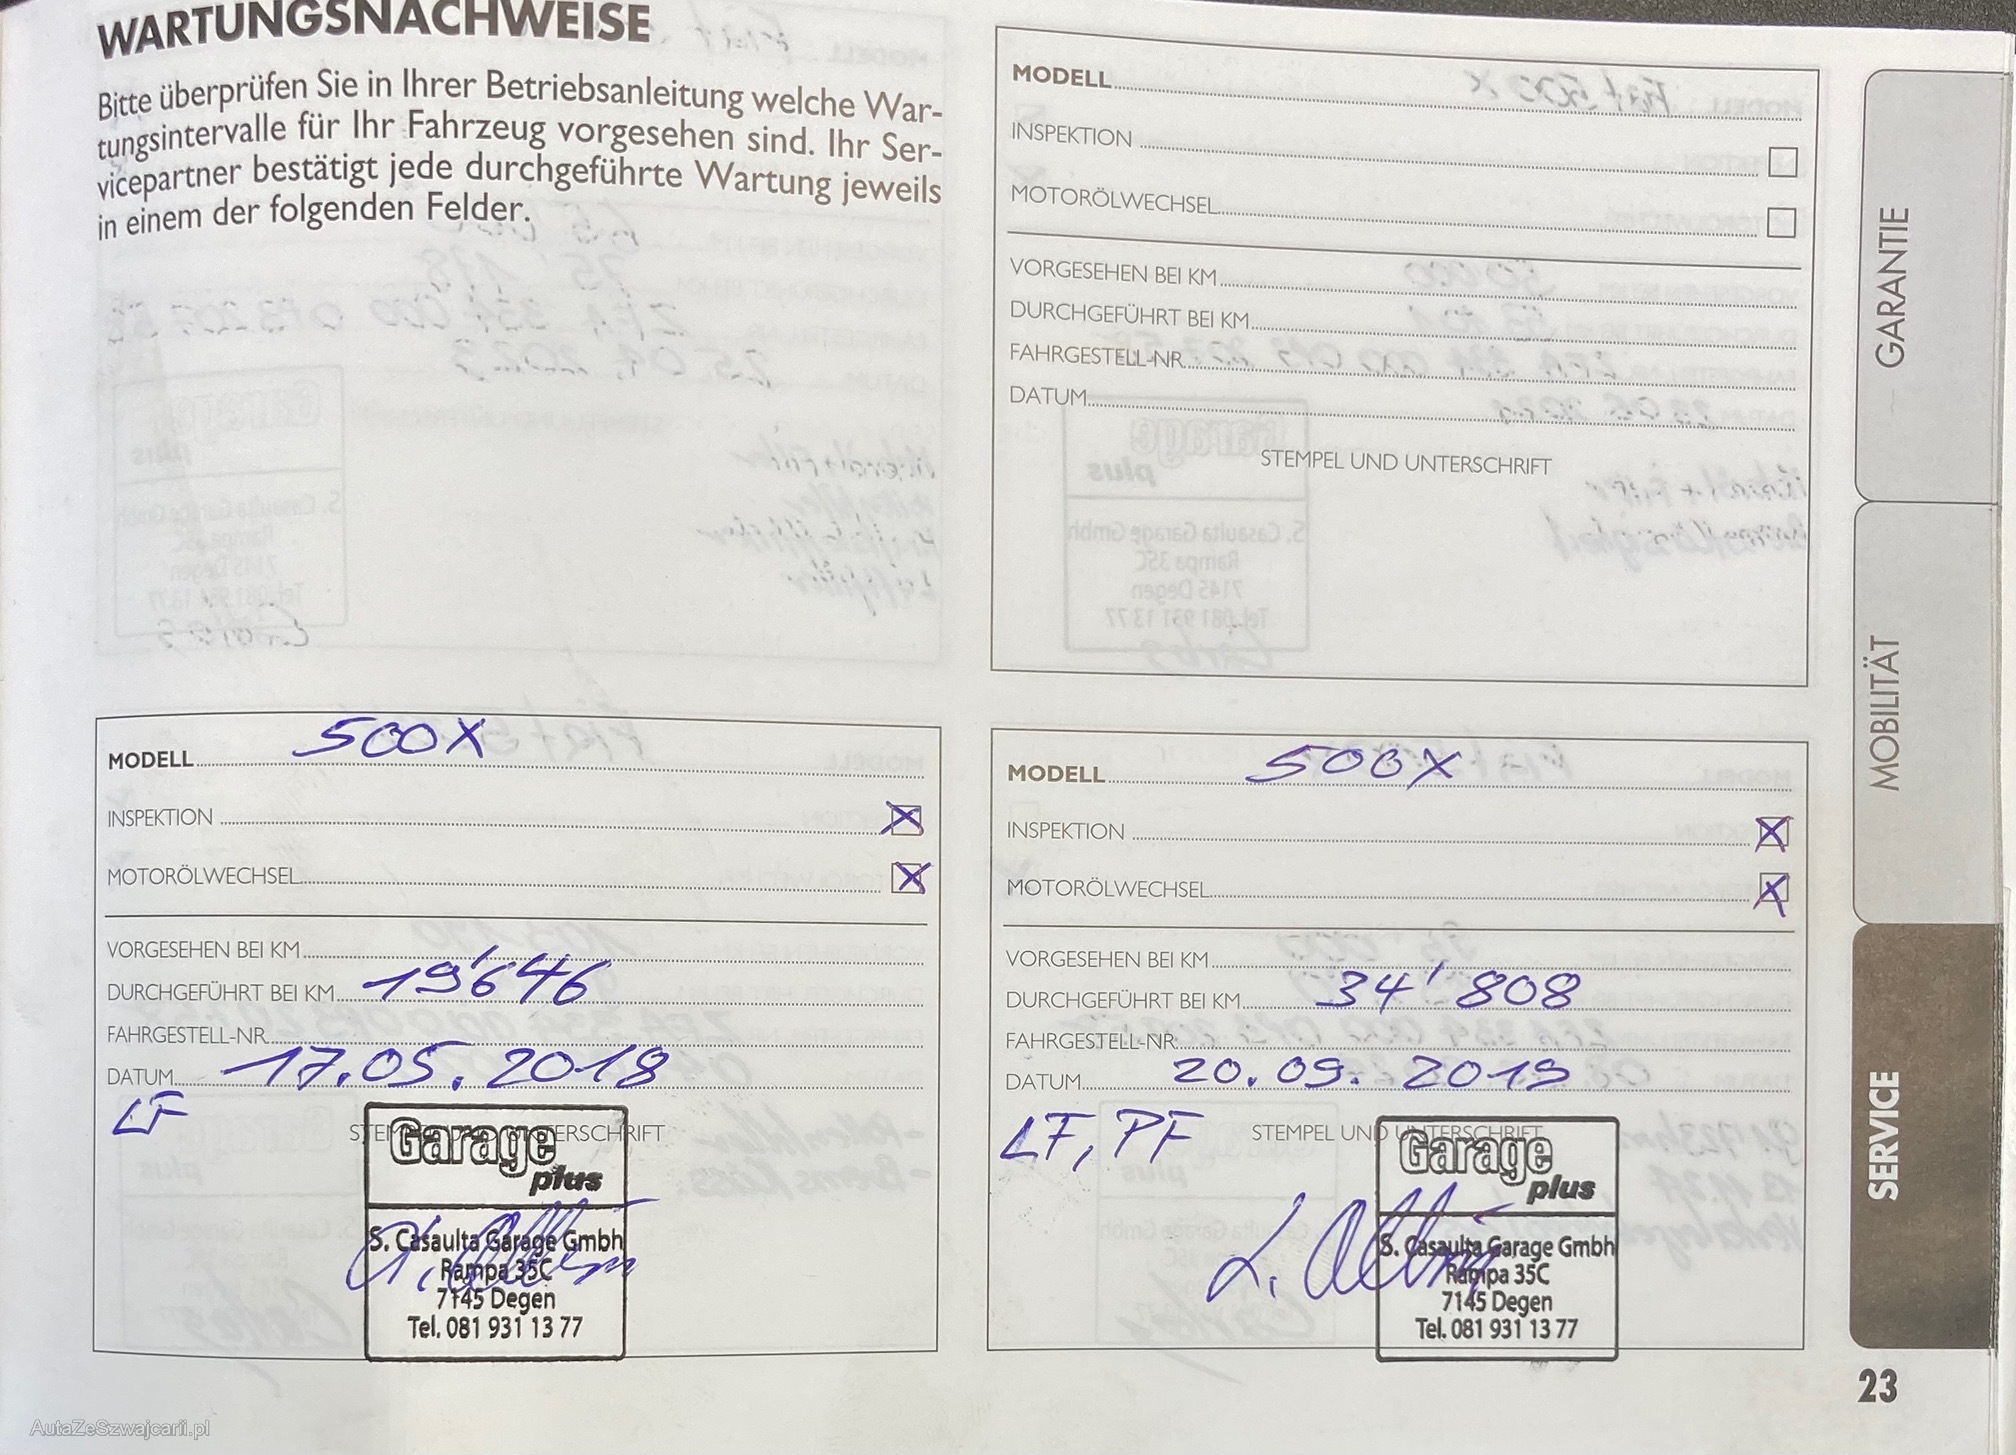 WARTUNGSNACHWEISE
Bitte überprüfen Sie in Ihrer Betriebsanleitung welche War-
tungsintervalle für Ihr Fahrzeug vorgesehen sind. Ihr Ser-
vicepartner bestätigt jede durchgeführte Wartung jeweils
in einem der folgenden Felder.
MODELL
INSPEKTION
MOTORÖLWECHSEL
VORGESEHEN BEI KM
DURCHGEFÜHRT BEI KM
FAHRGESTELL-NR.
DATUM
STEMPEL UND UNTERSCHRIFT
MODELL 500X
INSPEKTION X
MOTORÖLWECHSEL X
VORGESEHEN BEI KM
DURCHGEFÜHRT BEI KM 19'646
FAHRGESTELL-NR.
DATUM 17.05.2018
LF
STEMPEL UND UNTERSCHRIFT
Garage
plus
S. Casaulta Garage Gmbh
Rampa 35C
7145 Degen
Tel. 081 931 13 77
MODELL 500X
INSPEKTION X
MOTORÖLWECHSEL X
VORGESEHEN BEI KM
DURCHGEFÜHRT BEI KM 34'808
FAHRGESTELL-NR.
DATUM 20.09.2019
LF, PF
STEMPEL UND UNTERSCHRIFT
Garage
plus
S. Casaulta Garage Gmbh
Rampa 35C
7145 Degen
Tel. 081 931 13 77
GARANTIE
MOBILITÄT
SERVICE
23
AutaZeSzwajcarii.pl